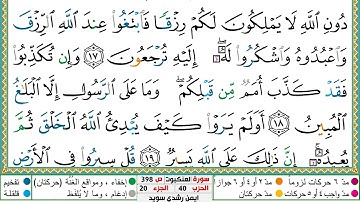 دُونِ ٱللَّهِ لَا يَمْلِكُونَ لَكُمْ رِزْقًا فَٱبْتَغُوا۟ عِندَ ٱللَّهِ ٱلرِّزْقَ
وَٱعْبُدُوهُ وَٱشْكُرُوا۟ لَهُۥٓ ۖ إِلَيْهِ تُرْجَعُونَ ١٧ وَإِن تُكَذِّبُوا۟
فَقَدْ كَذَّبَ أُمَمٌ مِّن قَبْلِكُمْ ۖ وَمَا عَلَى ٱلرَّسُولِ إِلَّا ٱلْبَلَـٰغُ
ٱلْمُبِينُ ١٨ أَوَلَمْ يَرَوْا۟ كَيْفَ يُبْدِئُ ٱللَّهُ ٱلْخَلْقَ ثُمَّ
يُعِيدُهُۥٓ ۚ إِنَّ ذَٰلِكَ عَلَى ٱللَّهِ يَسِيرٌ ١٩ قُلْ سِيرُوا۟ فِى ٱلْأَرْضِ
مد ٦ حركات لزوما مد ٢ أو ٤ أو ٦ جوازا سورة العنكبوت ص 398 إخفاء، ومواقع الغنة (حركتان) تفخيم
مد واجب ٤ أو ٥ حركات مد حركتان الحزب 40 الجزء 20 إدغام، وما لا يلفظ قلقلة
ايمن رشدي سويد